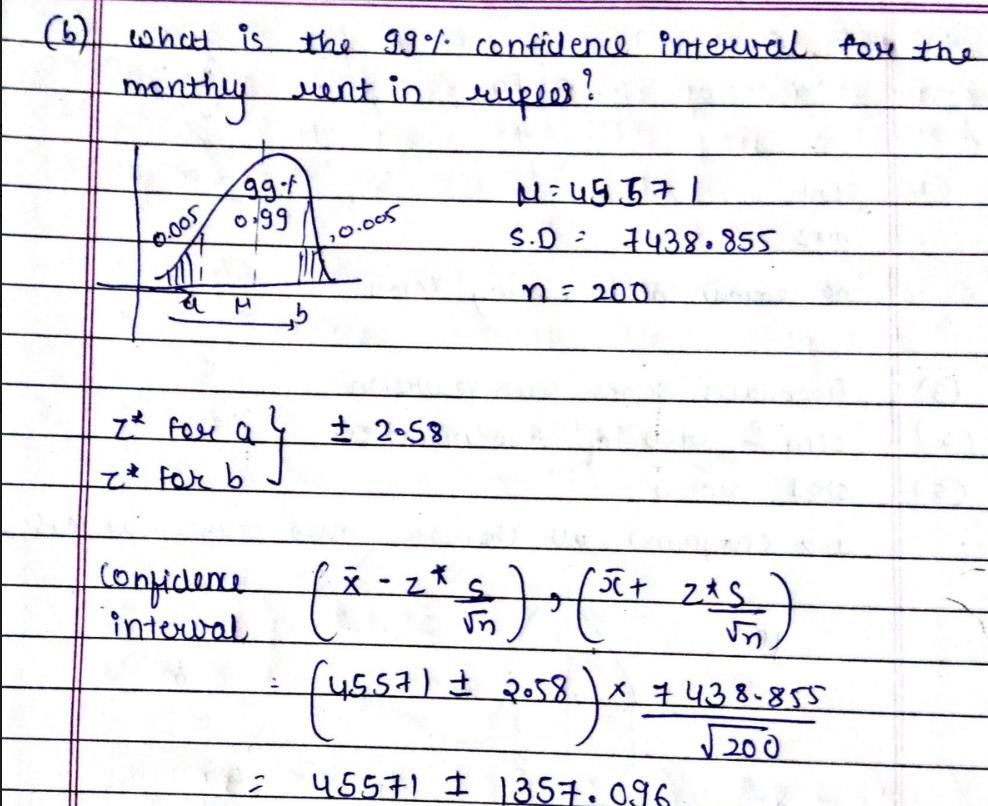 (b) what is the 99% confidence interval for the
monthly rent in rupees?
99%
0.99
0.005
0.005
a μ b
μ = 45571
S.D = 7438.855
n = 200
z* for a } ± 2.58
z* for b
confidence interval (x̄ - z* s/√n), (x̄ + z* s/√n)
= (45571 ± 2.58) × 7438.855/√200
= 45571 ± 1357.096